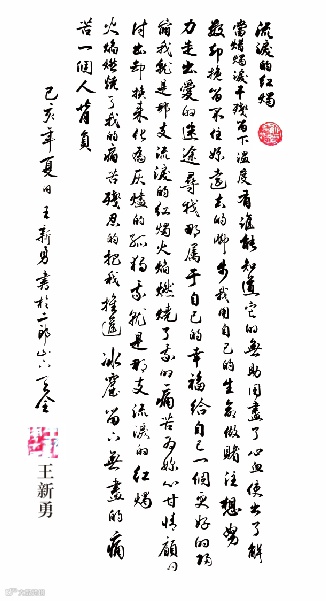 流淚的紅燭
當燭淚干殘留下溫度有誰能知道它的無助用盡了心血使出了解
数却換留不住妳遠去的脚步我用自己的生命做賭注想努
力走出愛的迷途尋找那屬于自己的幸福給自己一個更好的歸
宿我就是那支流淚的紅燭火焰燃燒了我的痛苦為妳心甘情願的
付出却換來化為灰燼的孤獨我就是那支流淚的紅燭
火焰燃燒了我的痛苦殘忍的把我推進冰窟留下無盡的痛
苦一個人背負
己亥年夏日王新勇書於二郎山下天全
王新勇